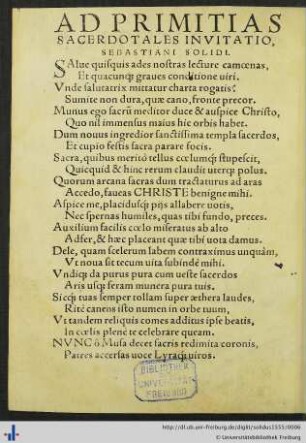 AD PRIMITIAS
SACERDOTALES INVITATIO,
SEBASTIANI SOLIDI.
SAlue quisquis ades nostras lecture camœnas,
Et quacunque graues conditione uiri.
Vnde salutatrix mittatur charta rogatis?
Sumite non dura, quæ cano, fronte precor.
Munus ego sacrū meditor duce & auspice Christo,
Quo nil immensus maius hic orbis habet.
Dum nouus ingredior sanctissima templa sacerdos,
Et cupio festis sacra parare focis.
Sacra, quibus meritò tellus cœlumq; stupescit,
Quicquid & hinc rerum claudit uterq; polus.
Quorum arcana sacras dum tractaturus ad aras
Accedo, faueas CHRISTE benigne mihi.
Aspice me, placidusq; pijs allabere uotis,
Nec spernas humiles, quas tibi fundo, preces.
Auxilium facilis cœlo miseratus ab alto
Adfer, & hæc placeant quæ tibi uota damus.
Dele, quam scelerum labem contraximus unquàm,
Vt noua sit tecum uita subinde mihi.
Vndiq; da purus pura cum ueste sacerdos
Aris usq; feram munera pura tuis.
Sicq; tuas semper tollam super æthera laudes,
Ritè canens isto numen in orbe tuum,
Vt tandem reliquis comes additus ipse beatis,
In cœlis plene te celebrare queam.
NVNC ô Musa decet sacris redimita coronis,
Patres accersas uoce Lyraq; uiros.
BIBLIOTHEK
UNIVERSITÄT
FREIBURG
http://dl.ub.uni-freiburg.de/diglit/solidus1555/0006
© Universitätsbibliothek Freiburg